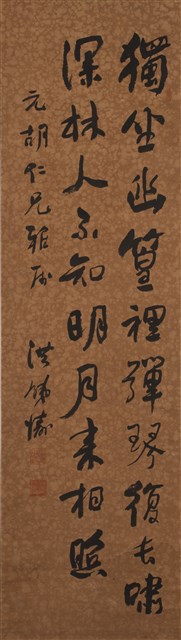 獨坐幽篁裡彈琴復長嘯
深林人不知明月来相照
元胡仁兄雅屬
洪錫疇